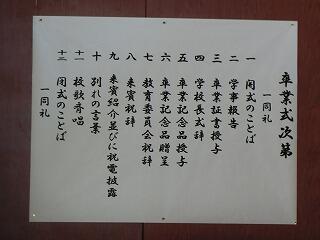 卒業式次第
一同礼
一 開式のことば
二 学事報告
三 卒業証書授与
四 学校長式辞
五 卒業記念品授与
六 卒業記念品贈呈
七 教育委員会祝辞
八 来賓祝辞
九 来賓紹介並びに祝電披露
十 別れの言葉
十一 校歌斉唱
十二 閉式のことば
一同礼